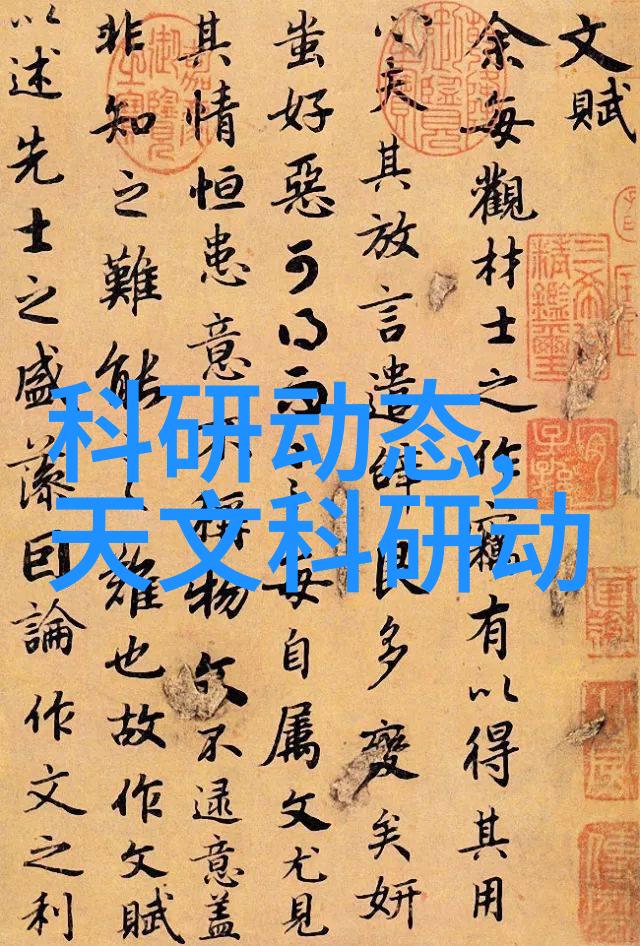 文賦
余每觀材士之作竊有以得其用
心夫其放言遣辭良多變矣妍
蚩好惡可得而言每自屬文尤見
其情恒患意不稱物文不逮意蓋
非知之難能之難也故作文賦
以述先士之盛藻因論作文之利
科研动态,
天文科研动